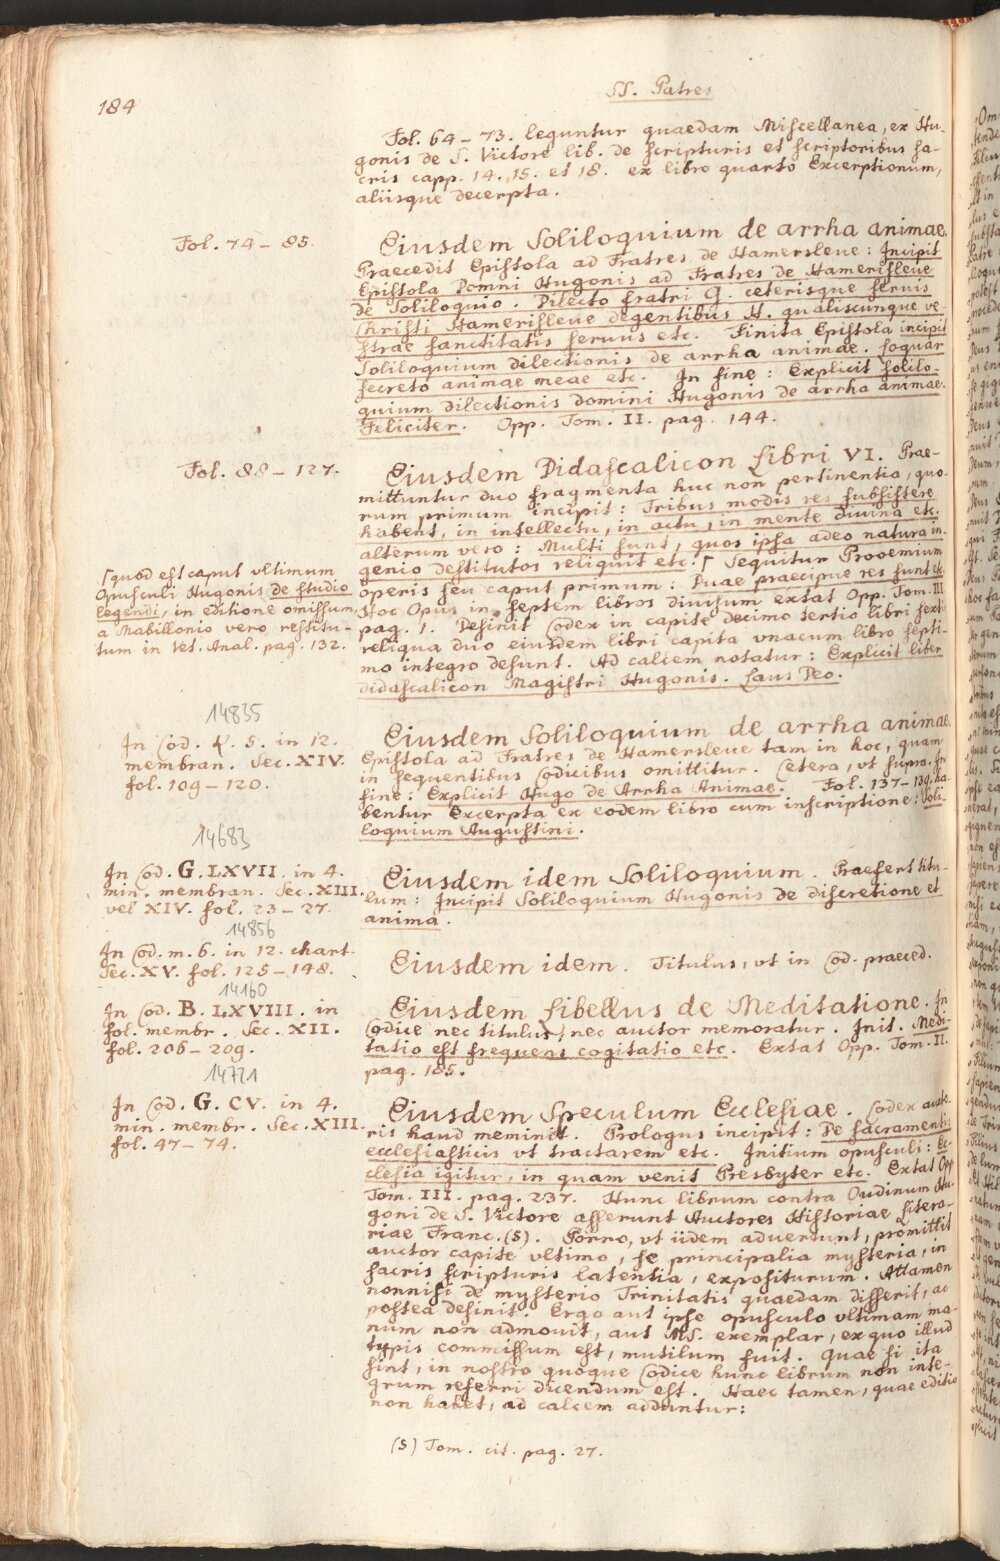 184
SS. Patres
Fol. 64 – 73. leguntur quaedam Miscellanea, ex Hu-
gonis de S. Victore lib. de scripturis et scriptoribus sa-
cris capp. 14. 15. et 18. ex libro quarto Excerptionum,
aliisque decerpta.
Fol. 74 – 85.
Eiusdem Soliloquium de arrha animae.
Praecedit Epistola ad Fratres de Hamersleue: Incipit
Epistola Domni Hugonis ad Fratres de Hamerisleue
de Soliloquio. Dilecto fratri G. ceterisque seruis
Christi Hamerisleue degentibus H. qualiscunque ve
strae sanctitatis seruus etc. Finita Epistola incipit
Soliloquium dilectionis de arrha animae. Loquar
secreto animae meae etc. In fine: Explicit solilo-
quium dilectionis domini Hugonis de arrha animae.
Feliciter. Opp. Tom. II. pag. 144.
Fol. 88 – 127.
Eiusdem Didascalicon Libri VI. Prae-
mittuntur duo fragmenta huc non pertinentia, quo-
rum primum incipit: Tribus modis res subsistere
habent, in intellectu, in actu, in mente diuina etc.
alterum vero: Multi sunt, quos ipsa adeo natura in-
genio destitutos reliquit etc. ⌈ Sequitur Prooemium
operis seu caput primum: Duae praecipue res sunt etc.
Hoc Opus in septem libros diuisum extat Opp. Tom. III
pag. 1. Desinit Codex in capite decimo tertio libri sexti
reliqua duo eiusdem libri capita vnacum libro septi-
mo integro desunt. Ad calcem notatur: Explicit liber
didascalicon Magistri Hugonis. Laus Deo.
⌈quod est caput vltimum
Opusculi Hugonis de studio
legendi, in editione omissum,
a Mabillonio vero restitu-
tum in Vet. Anal. pag. 132.
14835
In Cod. . 5. in 12.
membran. Sec. XIV.
fol. 109 – 120.
Eiusdem Soliloquium de arrha animae
Epistola ad Fratres de Hamersleue tam in hoc, quam
in sequentibus Codicibus omittitur. Cetera, vt supra. In
fine: Explicit Hugo de Arrha Animae. Fol. 137 – 139. ha-
bentur Excerpta ex eodem libro cum inscriptione: Soli-
loquium Augustini.
14683
In Cod. G. LXVII. in 4.
min. membran. Sec. XIII.
vel XIV. fol. 23 – 27.
Eiusdem idem Soliloquium. Praefert titu-
lum: Incipit Soliloquium Hugonis de discretione et
anima.
14856
In Cod. m. 6. in 12. chart.
Sec. XV. fol. 125 – 148.
Eiusdem idem. Titulus, vt in Cod. praeced.
14160
In Cod. B. LXVIII. in
fol. membr. Sec. XII.
fol. 206 – 209.
Eiusdem Libellus de Meditatione. In
Codice nec titulus, nec auctor memoratur. Init. Medi-
tatio est frequens cogitatio etc. Extat Opp. Tom. II.
pag. 185.
14721
In Cod. G. CV. in 4.
min. membr. Sec. XIII.
fol. 47 – 74.
Eiusdem Speculum Ecclesiae. Codex aucto-
ris haud meminit. Prologus incipit: De sacramentis
ecclesiasticis vt tractarem etc. Initium opusculi: Ec-
clesia igitur, in quam venit Presbyter etc. Extat Opp
Tom. III. pag. 237. Hunc librum contra Oudinum Hu-
goni de S. Victore asserunt Auctores Historiae Litera-
riae Franc. (S). Porro, vt iidem aduertunt, promittit
auctor capite vltimo, se principalia mysteria, in
sacris scripturis latentia, expositurum. Attamen
nonnisi de mysterio Trinitatis quaedam disserit, ac
postea desinit. Ergo aut ipse opusculo vltimam ma-
num non admouit, aut MS. exemplar, ex quo illud
typis commissum est, mutilum fuit. Quae si ita
sint, in nostro quoque Codice hunc librum non inte-
grum referri dicendum est. Haec tamen, quae editio
non habet, ad calcem adduntur:
(S) Tom. cit. pag. 27.